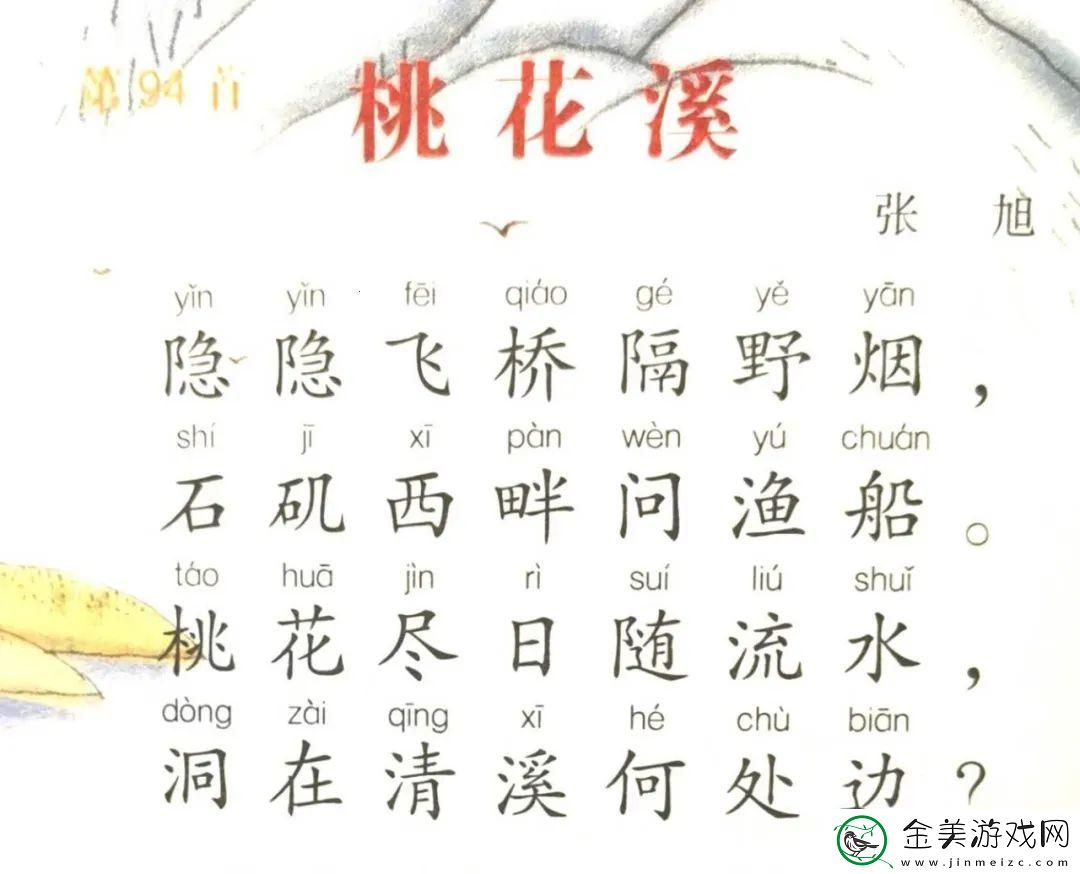 第94首
桃花溪
张 旭
yǐn yǐn fēi qiáo gé yě yān
隐隐飞桥隔野烟，
shí jī xī pàn wèn yú chuán
石矶西畔问渔船。
táo huā jìn rì suí liú shuǐ
桃花尽日随流水，
dòng zài qīng xī hé chù biān
洞在清溪何处边？
金美游戏网
www.jinmeizc.com